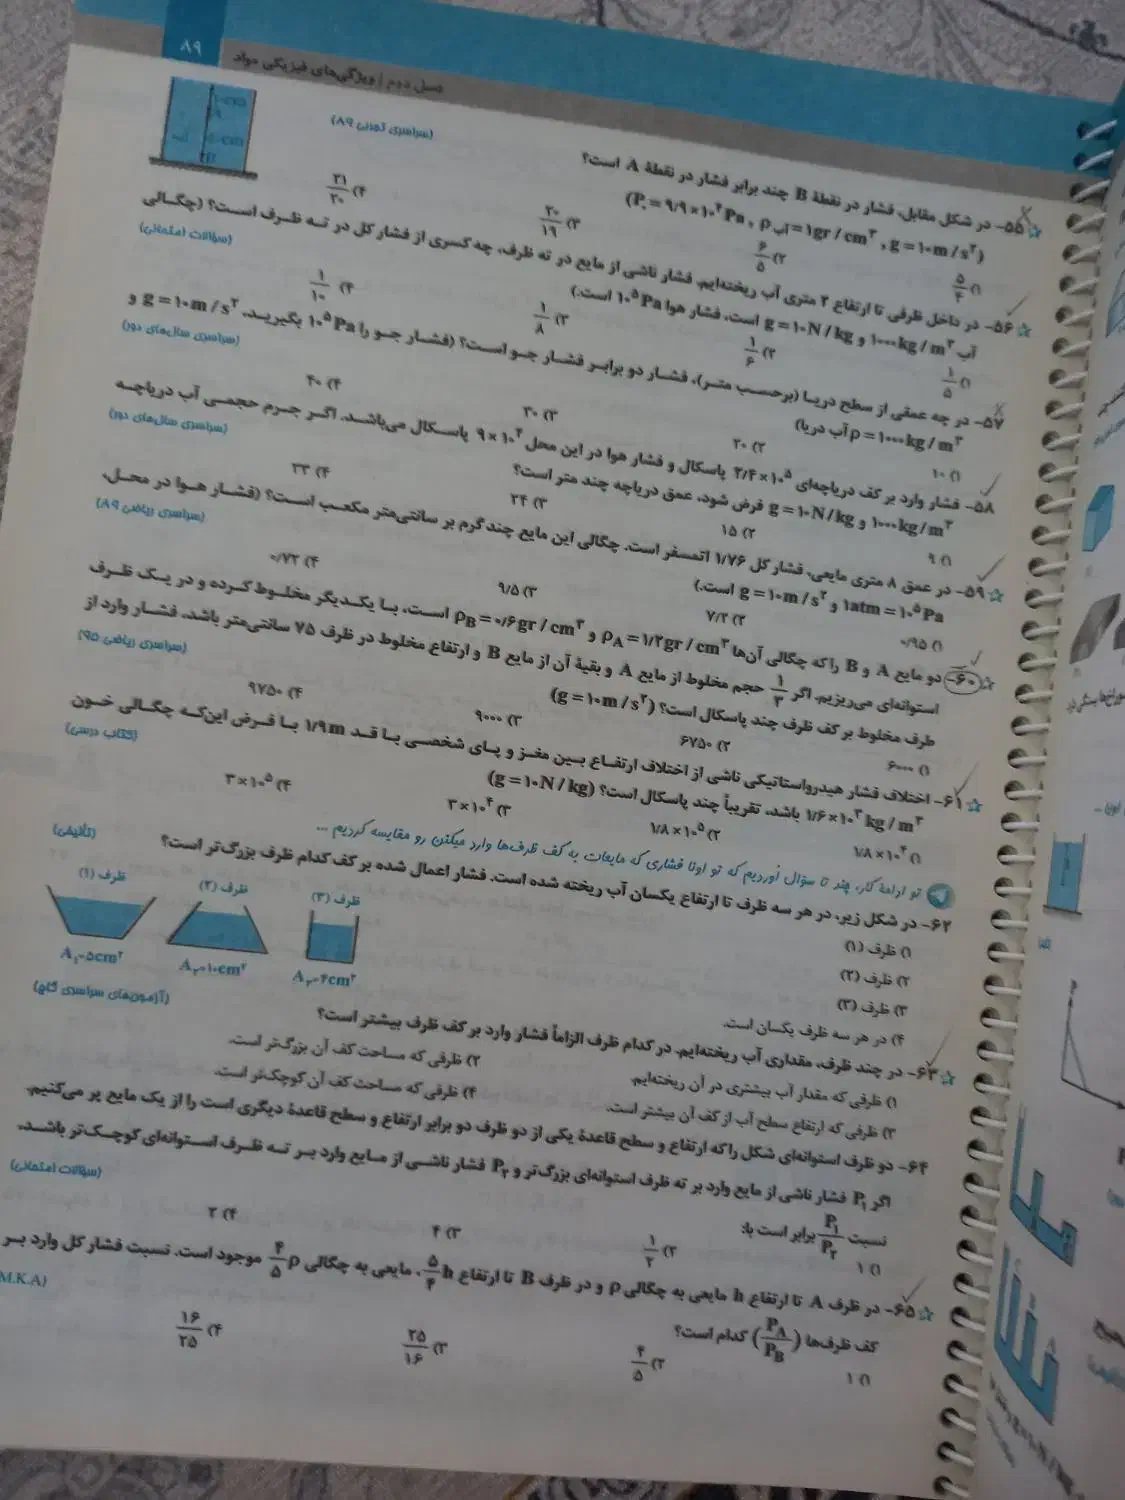 ۸۹
فصل دوم | ویژگی‌های فیزیکی مواد
۵۵- در شکل مقابل، فشار در نقطهٔ B چند برابر فشار در نقطهٔ A است؟
(سراسری تجربی ۸۹)
(P۰ = ۹/۹ × ۱۰⁴ Pa , ρآب = ۱gr / cm³ , g = ۱۰m / s²)
۱) ۵/۴
۲) ۶/۵
۳) ۲۰/۱۹
۴) ۲۱/۲۰
۵۶- در داخل ظرفی تا ارتفاع ۲ متری آب ریخته‌ایم. فشار ناشی از مایع در ته ظرف، چه کسری از فشار کل در تـه ظـرف اسـت؟ (چگـالی
آب ۱۰۰۰kg / m³ و g = ۱۰N / kg است. فشار هوا ۱۰⁵ Pa است.)
(سؤالات امتحانی)
۱) ۱/۵
۲) ۱/۶
۳) ۱/۸
۴) ۱/۱۰
۵۷- در چه عمقی از سطح دریـا (برحسـب متـر)، فشـار دو برابـر فشـار جـو اسـت؟ (فشـار جـو را ۱۰⁵ Pa بگیریـد. g = ۱۰m / s² و
ρ = ۱۰۰۰kg / m³ آب دریا)
(سراسری سال‌های دور)
۱) ۱۰
۲) ۲۰
۳) ۳۰
۴) ۴۰
۵۸- فشار وارد بر کف دریاچه‌ای ۲/۴ × ۱۰⁵ پاسکال و فشار هوا در این محل ۹ × ۱۰⁴ پاسـکال می‌باشـد. اگـر جـرم حجمـی آب دریاچـه
۱۰۰۰kg / m³ و g = ۱۰N / kg فرض شود، عمق دریاچه چند متر است؟
(سراسری سال‌های دور)
۱) ۹
۲) ۱۵
۳) ۲۴
۴) ۳۳
۵۹- در عمق ۸ متری مایعی، فشار کل ۱/۷۶ اتمسفر است. چگالی این مایع چند گرم بر سانتی‌متر مکعـب اسـت؟ (فشـار هـوا در محـل،
۱atm = ۱۰⁵ Pa و g = ۱۰m / s² است.)
(سراسری ریاضی ۸۹)
۱) ۰/۹۵
۲) ۷/۲
۳) ۹/۵
۴) ۰/۷۲
۶۰- دو مایع A و B را که چگالی آن‌ها ρA = ۱/۲gr / cm³ و ρB = ۰/۶gr / cm³ اسـت، بـا یکـدیگر مخلـوط کـرده و در یـک ظـرف
استوانه‌ای می‌ریزیم. اگر ۱/۳ حجم مخلوط از مایع A و بقیهٔ آن از مایع B و ارتفاع مخلوط در ظرف ۷۵ سانتی‌متر باشد، فشـار وارد از
طرف مخلوط بر کف ظرف چند پاسکال است؟ (g = ۱۰m / s²)
(سراسری ریاضی ۹۵)
۱) ۶۰۰۰
۲) ۶۷۵۰
۳) ۹۰۰۰
۴) ۹۷۵۰
۶۱- اختلاف فشار هیدرواستاتیکی ناشی از اختلاف ارتفـاع بـین مغـز و پـای شخصـی بـا قـد ۱/۹m بـا فـرض این‌کـه چگـالی خـون
۱/۶ × ۱۰³ kg / m³ باشد، تقریباً چند پاسکال است؟ (g = ۱۰N / kg)
(کتاب درسی)
۱) ۱/۸ × ۱۰⁴
۲) ۱/۸ × ۱۰⁵
۳) ۳ × ۱۰⁴
۴) ۳ × ۱۰⁵
تو ادامهٔ کار، چند تا سؤال آوردیم که تو اونا فشاری که مایعات به کف ظرف‌ها وارد میکنن رو مقایسه کردیم ...
۶۲- در شکل زیر، در هر سه ظرف تا ارتفاع یکسان آب ریخته شده است. فشار اعمال شده بر کف کدام ظرف بزرگ‌تر است؟
(تألیفی)
۱) ظرف (۱)
۲) ظرف (۲)
۳) ظرف (۳)
۴) در هر سه ظرف یکسان است.
ظرف (۱)
ظرف (۲)
ظرف (۳)
A۱=۵cm²
A۲=۱۰cm²
A۳=۴cm²
۶۳- در چند ظرف، مقداری آب ریخته‌ایم. در کدام ظرف الزاماً فشار وارد بر کف ظرف بیشتر است؟
(آزمون‌های سراسری گاج)
۱) ظرفی که مقدار آب بیشتری در آن ریخته‌ایم.
۲) ظرفی که مساحت کف آن بزرگ‌تر است.
۳) ظرفی که ارتفاع سطح آب از کف آن بیشتر است.
۴) ظرفی که مساحت کف آن کوچک‌تر است.
۶۴- دو ظرف استوانه‌ای شکل را که ارتفاع و سطح قاعدهٔ یکی از دو ظرف دو برابر ارتفاع و سطح قاعدهٔ دیگری است را از یک مایع پر می‌کنیم.
اگر P۱ فشار ناشی از مایع وارد بر ته ظرف استوانه‌ای بزرگ‌تر و P۲ فشار ناشـی از مـایع وارد بـر تـه ظـرف اسـتوانه‌ای کوچـک‌تر باشـد،
نسبت P۱/P۲ برابر است با:
(سؤالات امتحانی)
۱) ۱
۲) ۱/۲
۳) ۴
۴) ۲
۶۵- در ظرف A تا ارتفاع h مایعی به چگالی ρ و در ظرف B تا ارتفاع ۵/۴h، مایعی به چگالی ۴/۵ρ موجود است. نسبت فشار کل وارد بـر
کف ظرف‌ها (PA/PB) کدام است؟
M.K.A)
۱) ۱
۲) ۴/۵
۳) ۲۵/۱۶
۴) ۱۶/۲۵